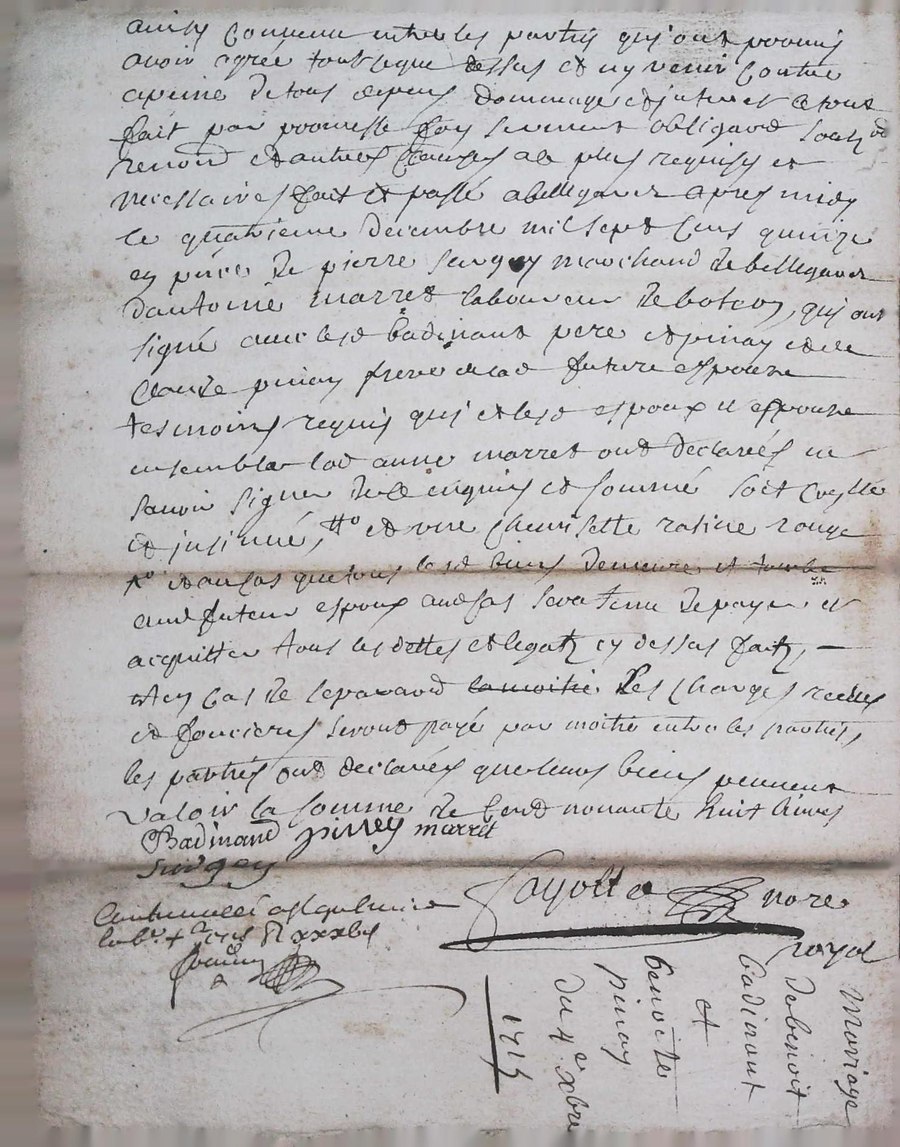 ainsy convenu entre les parties qui ont promis
avoir agréé tout ceque dessus et ny venir contre
apeine de tous depens dommages et interest et tout
fait par promesse foy serment obligaōn
renonōn et autres clauses ale plus requises et
necessaires fait et passé abellegarde apres midy
le quatrieme decembre mil sept cens quinze
en pñce de pierre marchand de bellegarde
dantoine marret laboureur de qui ont
signé avec lesd badinand pere et pinay et de
claude pinay frere alad future espouse
tesmoins requis qui et lesd espoux et espouse
ensemble lad anne marret ont declarés ne
savoir signer de ce enquis et sommé soit
et insinué, tt° et une chemisette ratine rouge
tt° et au cas que tous lesd biens demeure et tombe
aud futeur espoux aud cas sera tenu de payer et
acquitter tous les dettes et legatz cy dessus faitz, —
et en cas de separaōn la moitié les charges reelles
et foncieres seront payé par moitié entre les parties,
les parties ont declarés que leurs biens peuvent
valoir la somme de cent nonante huit livres
Badinand pinay marret
Surgey
Cayotte nore
royal
Mariage
de benoit
badinant
et
benoite
pinay
du 4e xbre
1715